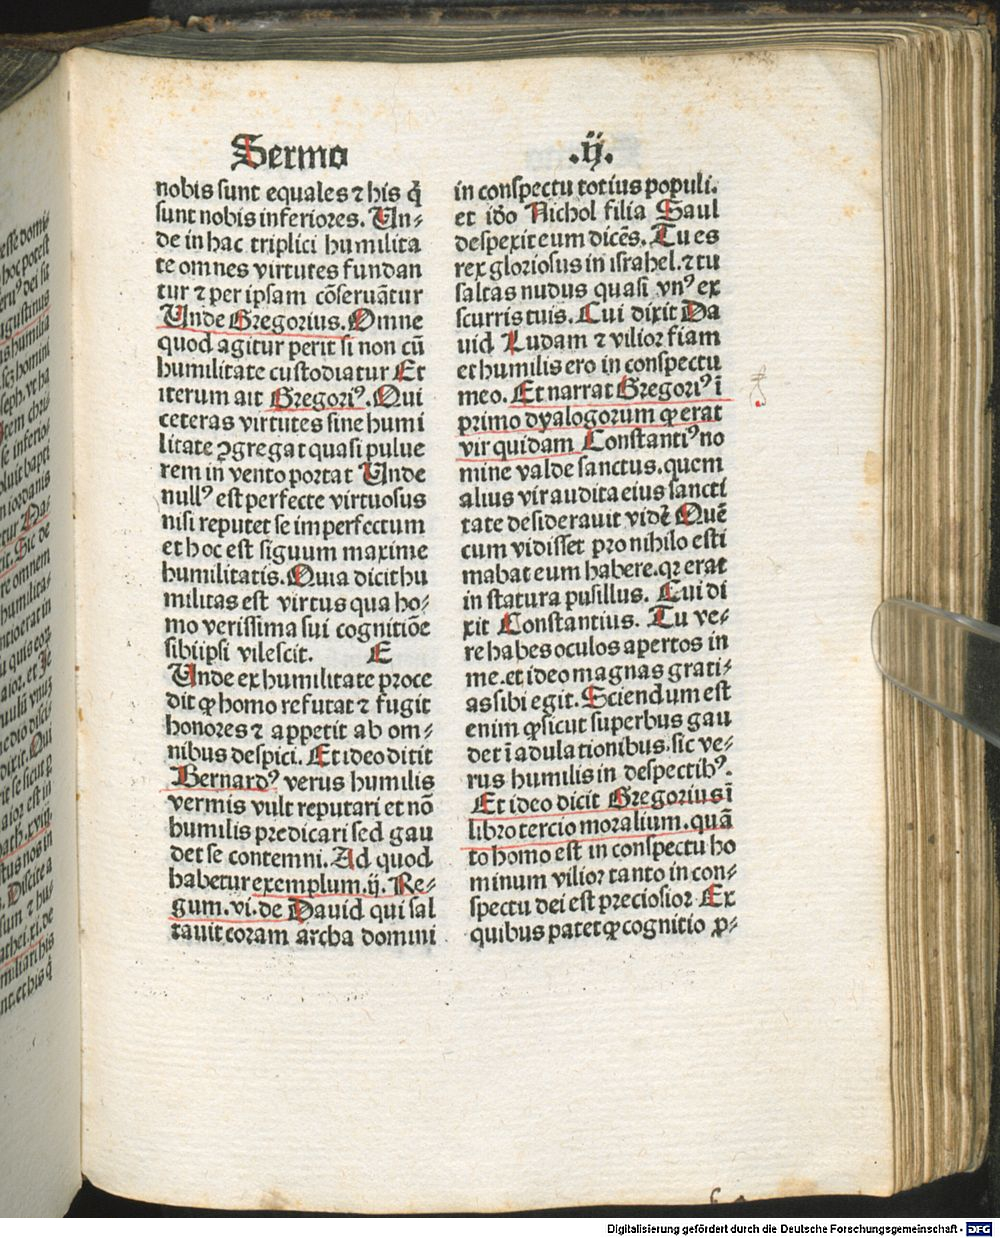 Sermo .ij.
nobis sunt equales ⁊ his q̄
sunt nobis inferiores. Un⸗
de in hac triplici humilita
te omnes virtutes fundan
tur ⁊ per ipsam cōseruātur
Unde Gregorius. Omne
quod agitur perit si non cū
humilitate custodiatur Et
iterum ait Gregoriꝰ. Qui
ceteras virtutes sine humi
litate ꝯgregat quasi pulue
rem in vento portat Unde
nullꝰ est perfecte virtuosus
nisi reputet se imperfectum
et hoc est signum maxime
humilitatis. Quia dicit hu
militas est virtus qua ho⸗
mo verissima sui cognitiōe
sibiipsi vilescit. E
Unde ex humilitate proce
dit ꝙ homo refutat ⁊ fugit
honores ⁊ appetit ab om⸗
nibus despici. Et ideo dicit
Bernardꝰ verus humilis
vermis vult reputari et nō
humilis predicari sed gau
det se contemni. Ad quod
habetur exemplum. ij. Re⸗
gum. vi. de David qui sal
tauit coram archa domini
in conspectu totius populi.
et idōo Nichol filia Saul
despexit eum dicēs. Tu es
rex gloriosus in israhel. ⁊ tu
saltas nudus quasi vnꝰ ex
scurris tuis. Cui dixit Da
uid Ludam ⁊ vilior fiam
et humilis ero in conspectu
meo. Et narrat Gregoriꝰ ī
primo dyalogorum ꝙ erat
vir quidam Constantiꝰ no
mine valde sanctus. quem
alius vir audita eius sancti
tate desiderauit vidē Quē
cum vidisset pro nihilo esti
mabat eum habere. qꝛ erat
in statura pusillus. Cui di
xit Constantius. Tu ve⸗
re habes oculos apertos in
me. et ideo magnas grati⸗
as sibi egit. Sciendum est
enim ꝙ sicut superbus gau
det ī adulationibus. sic ve⸗
rus humilis in despectibꝰ.
Et ideo dicit Gregorius ī
libro tercio moralium. quā
to homo est in conspectu ho
minum vilior tanto in con⸗
spectu dei est preciosior Ex
quibus patet ꝙ cognitio ꝓ⸗
Digitalisierung gefördert durch die Deutsche Forschungsgemeinschaft - DFG